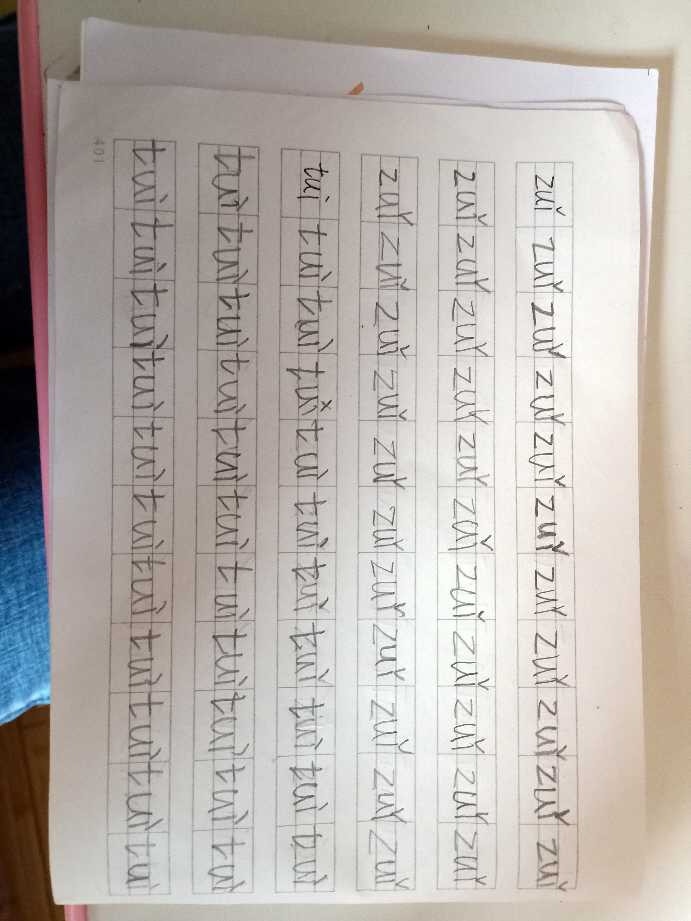 zuǐ zuǐ zuǐ zuǐ zuǐ zuǐ zuǐ zuǐ zuǐ zuǐ zuǐ
zuǐ zuǐ zuǐ zuǐ zuǐ zuǐ zuǐ zuǐ zuǐ zuǐ zuǐ
zuǐ zuǐ zuǐ zuǐ zuǐ zuǐ zuǐ zuǐ zuǐ zuǐ zuǐ
tuì tuì tuì tuǐ tuì tuì tuì tuì tuì tuì tuì
tuì tuì tuì tuì tuì tuì tuì tuì tuì tuì tuì
tuì tuì tuì tuì tuì tuì tuì tuì tuì tuì tuì
401